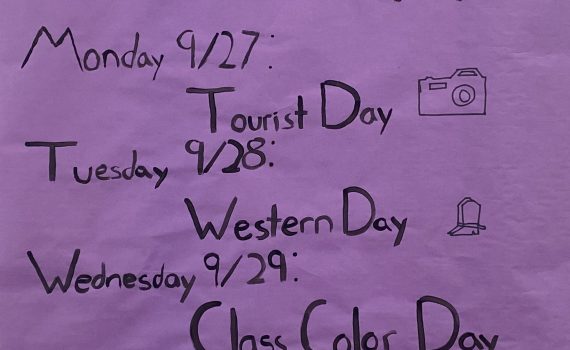 Monday 9/27:
Tourist Day
Tuesday 9/28:
Western Day
Wednesday 9/29:
Class Color Day